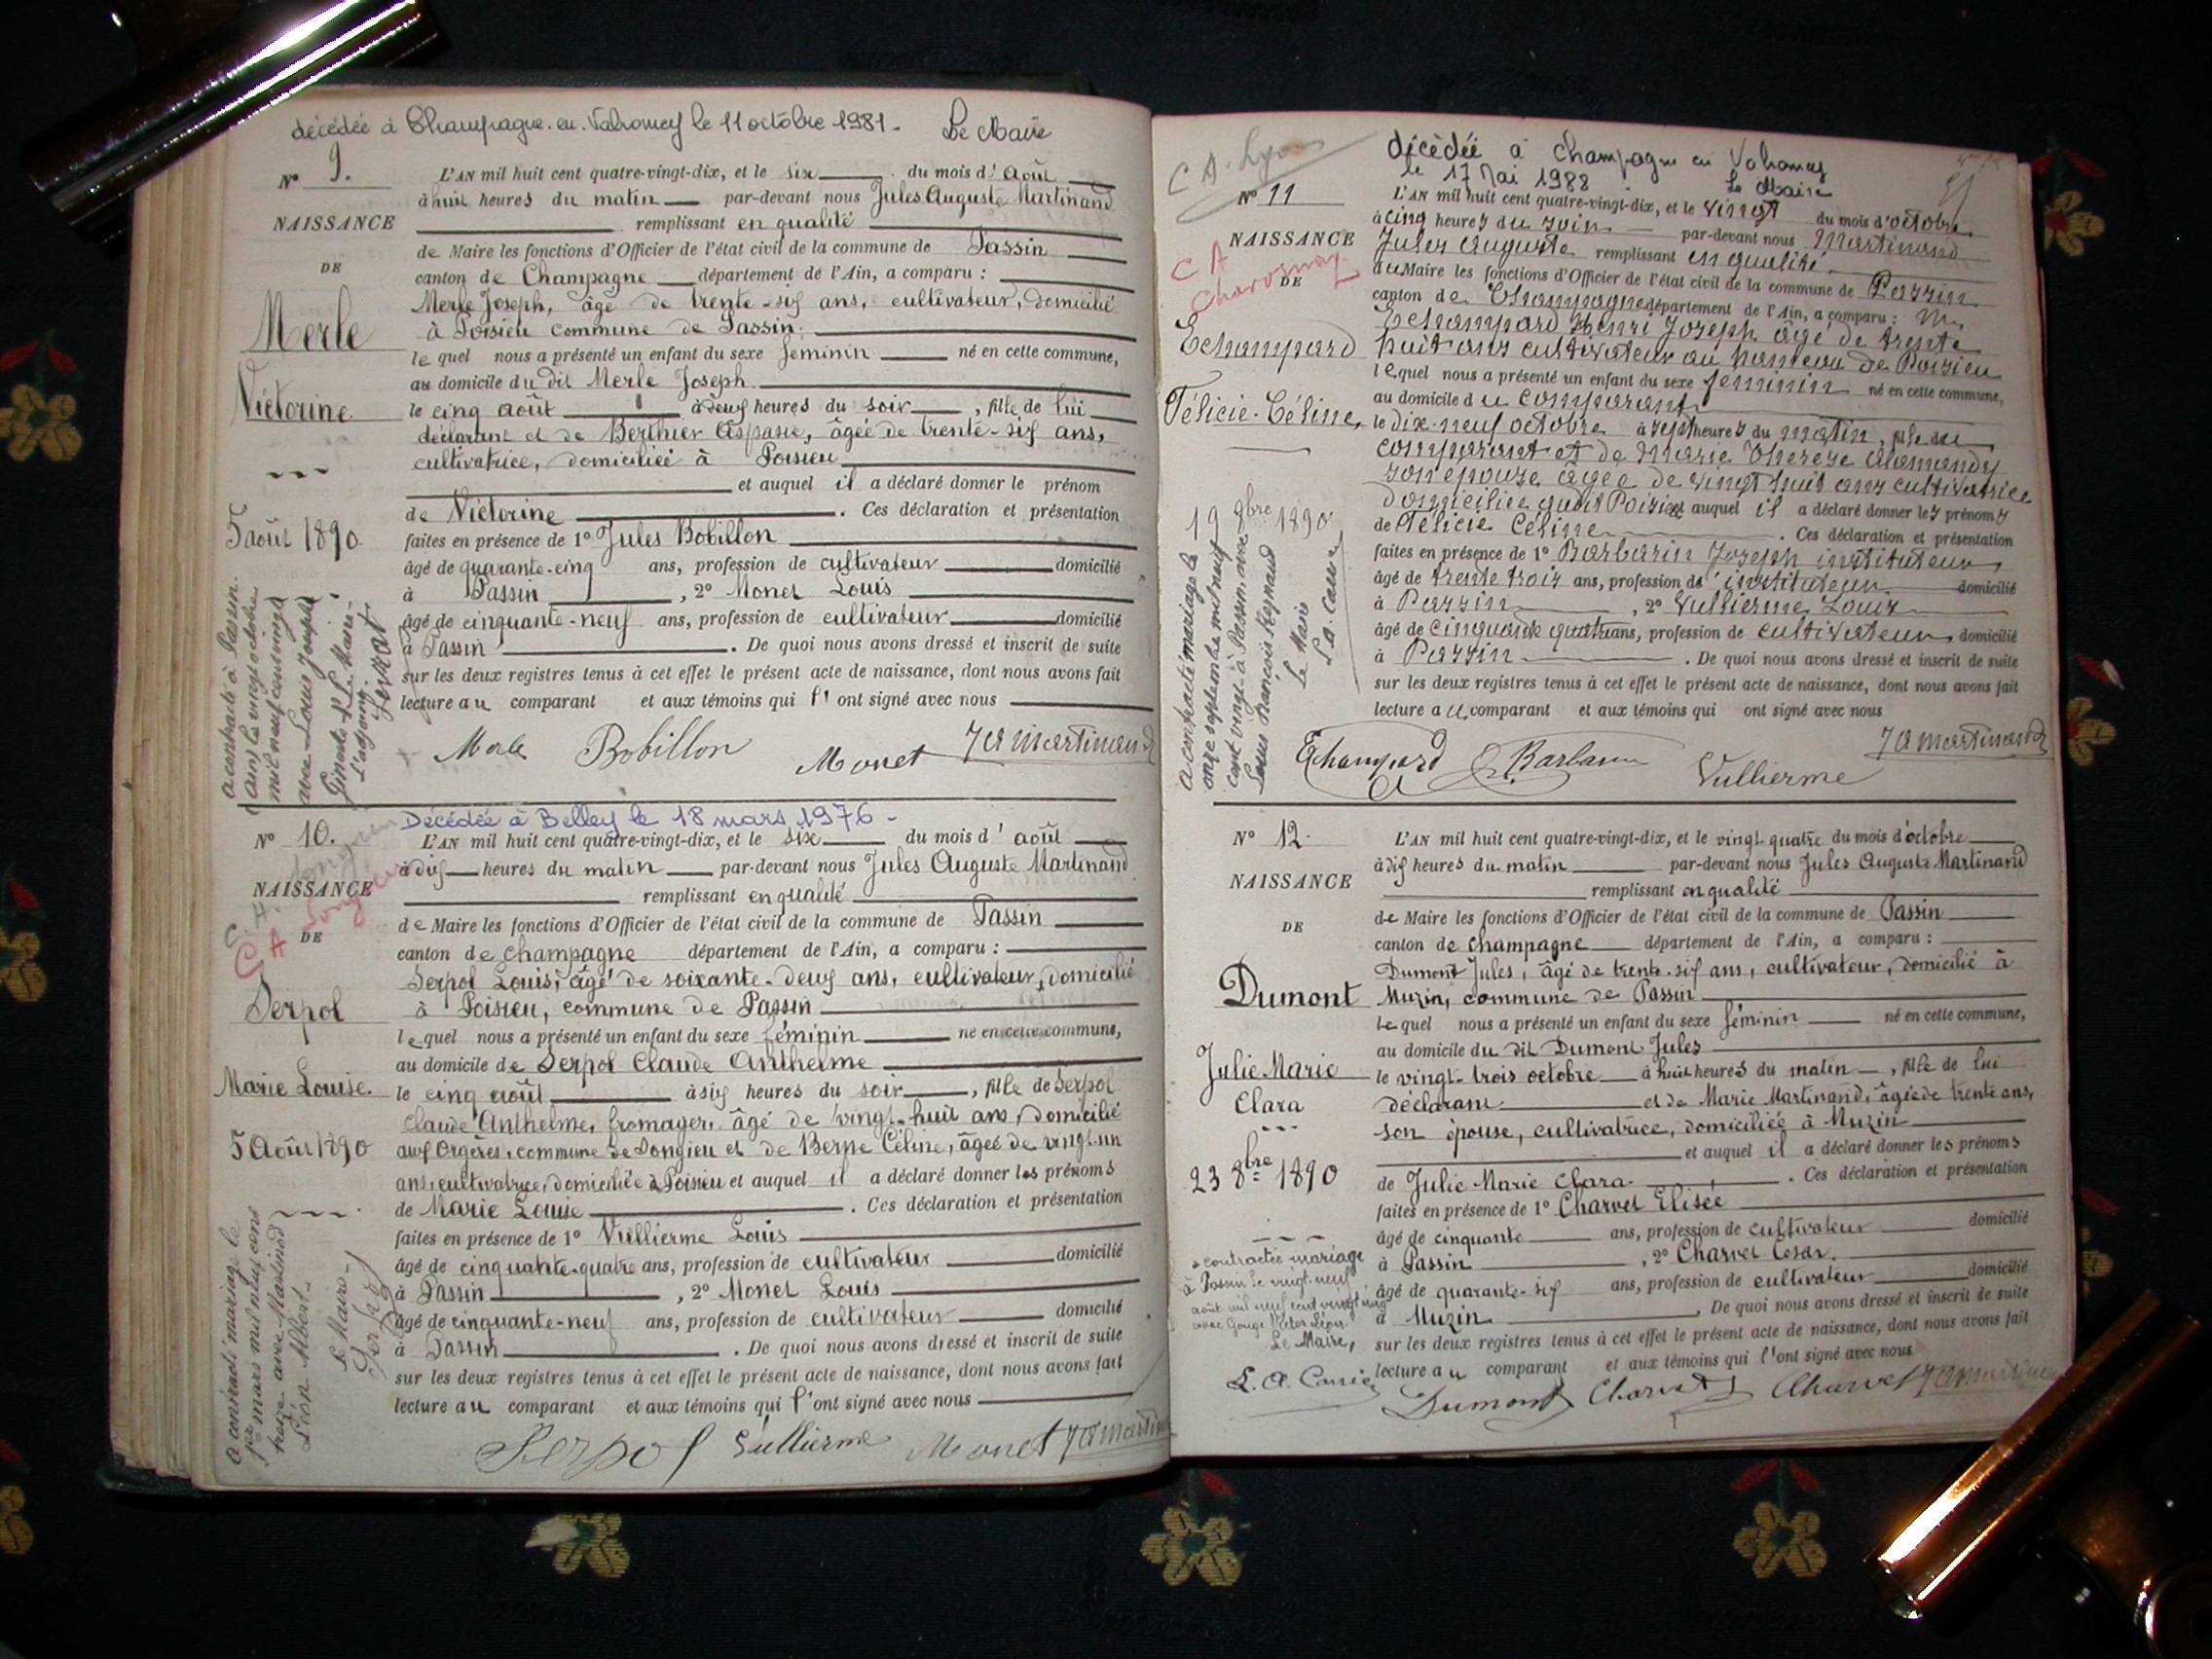 décédée à Champagne-en-Valromey le 11 octobre 1981. Le Maire
N° 9.
NAISSANCE
DE
Merle
Victorine.
5 août 1890.
a contracté à Passin.
mil neuf cent vingt
avec Louis Joseph
L'adjoint.
L'AN mil huit cent quatre-vingt-dix, et le six du mois d'août
à huit heures du matin par-devant nous Jules Auguste Martinand
remplissant en qualité
de Maire les fonctions d'Officier de l'état civil de la commune de Passin
canton de Champagne département de l'Ain, a comparu :
Merle Joseph, âgé de trente-six ans, cultivateur, domicilié
à Poisieu commune de Passin.
lequel nous a présenté un enfant du sexe féminin né en cette commune,
au domicile du dit Merle Joseph.
le cinq août à deux heures du soir, fille de lui
déclarant et de Berthier Aspasie, âgée de trente-six ans,
cultivatrice, domiciliée à Poisieu
et auquel il a déclaré donner le prénom
de Victorine. Ces déclaration et présentation
faites en présence de 1° Jules Bobillon
âgé de quarante-cinq ans, profession de cultivateur domicilié
à Passin, 2° Monet Louis
âgé de cinquante-neuf ans, profession de cultivateur domicilié
à Passin. De quoi nous avons dressé et inscrit de suite
sur les deux registres tenus à cet effet le présent acte de naissance, dont nous avons fait
lecture au comparant et aux témoins qui l'ont signé avec nous
Merle Bobillon Monet JAMartinand
Décédée à Belley le 18 mars 1976-
N° 10.
NAISSANCE
DE
Serpol
Marie Louise.
5 Août 1890
a contracté mariage le
1er mars mil neuf cent
treize avec Martinod
Léon Albert.
Le Maire
L'AN mil huit cent quatre-vingt-dix, et le six du mois d'août
à dix heures du matin par-devant nous Jules Auguste Martinand
remplissant en qualité
de Maire les fonctions d'Officier de l'état civil de la commune de Passin
canton de champagne département de l'Ain, a comparu :
Serpol Louis, âgé de soixante-deux ans, cultivateur, domicilié
à Poisieu, commune de Passin
lequel nous a présenté un enfant du sexe féminin né en cette commune,
au domicile de Serpol Claude Anthelme
le cinq août à six heures du soir, fille de Serpol
Claude Anthelme, fromager, âgé de vingt-huit ans, domicilié
aux Orgères, commune de Songieu et de Berne Céline, âgée de vingt-un
ans, cultivatrice, domiciliée à Poisieu et auquel il a déclaré donner les prénoms
de Marie Louise. Ces déclaration et présentation
faites en présence de 1° Vullierme Louis
âgé de cinquante-quatre ans, profession de cultivateur domicilié
à Passin, 2° Monet Louis
âgé de cinquante-neuf ans, profession de cultivateur domicilié
à Passin. De quoi nous avons dressé et inscrit de suite
sur les deux registres tenus à cet effet le présent acte de naissance, dont nous avons fait
lecture au comparant et aux témoins qui l'ont signé avec nous
Serpol Vullierme Monet JAMartinand
CA. Lyon
décédée à Champagne en Valromey
le 17 Mai 1988 Le Maire
N° 11
NAISSANCE
DE
Echampard
Félicie-Céline,
19 8bre 1890
a contracté mariage le
onze septembre mil neuf
cent vingt à Passin avec
François Reynaud
Le Maire
L'AN mil huit cent quatre-vingt-dix, et le vingt du mois d'octobre
à cinq heures du soir par-devant nous Martinand
Jules Auguste remplissant en qualité
du Maire les fonctions d'Officier de l'état civil de la commune de Passin
canton de Champagne département de l'Ain, a comparu : Mr
Echampard Henri Joseph âgé de trente
huit ans cultivateur au hameau de Poisieu
lequel nous a présenté un enfant du sexe féminin né en cette commune,
au domicile du comparant
le dix-neuf octobre à sept heures du matin, fille du
comparant et de Marie Thérèse Alamandy
son épouse âgée de vingt huit ans cultivatrice
domiciliée audit Poisieu et auquel il a déclaré donner les prénoms
de Félicie Céline. Ces déclaration et présentation
faites en présence de 1° Barbarin Joseph instituteur
âgé de trente trois ans, profession d'instituteur domicilié
à Passin, 2° Vullierme Louis
âgé de cinquante quatre ans, profession de cultivateur domicilié
à Passin. De quoi nous avons dressé et inscrit de suite
sur les deux registres tenus à cet effet le présent acte de naissance, dont nous avons fait
lecture au comparant et aux témoins qui ont signé avec nous
Echampard Barbarin Vullierme JAMartinand
N° 12.
NAISSANCE
DE
Dumont
Julie Marie
Clara
23 8bre 1890
a contractée mariage
à Passin le vingt-neuf
août mil neuf cent vingt cinq
avec Gouge Victor
Le Maire,
L'AN mil huit cent quatre-vingt-dix, et le vingt-quatre du mois d'octobre
à dix heures du matin par-devant nous Jules Auguste Martinand
remplissant en qualité
de Maire les fonctions d'Officier de l'état civil de la commune de Passin
canton de champagne département de l'Ain, a comparu :
Dumont Jules, âgé de trente-six ans, cultivateur, domicilié à
Muzin, commune de Passin
lequel nous a présenté un enfant du sexe féminin né en cette commune,
au domicile du dit Dumont Jules
le vingt-trois octobre à huit heures du matin, fille de lui
déclarant et de Marie Martinand, âgée de trente ans,
son épouse, cultivatrice, domiciliée à Muzin
et auquel il a déclaré donner les prénoms
de Julie Marie Clara. Ces déclaration et présentation
faites en présence de 1° Charvet Elisée
âgé de cinquante ans, profession de cultivateur domicilié
à Passin, 2° Charvet César.
âgé de quarante-six ans, profession de cultivateur domicilié
à Muzin. De quoi nous avons dressé et inscrit de suite
sur les deux registres tenus à cet effet le présent acte de naissance, dont nous avons fait
lecture au comparant et aux témoins qui l'ont signé avec nous
Dumont Charvet Charvet JAMartinand